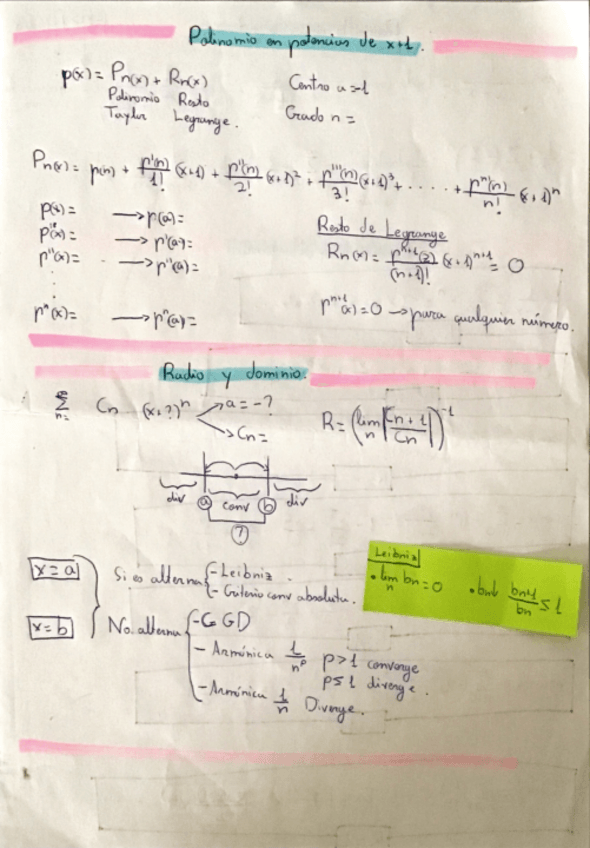 Polinomio en potencias de x+1.
p(x) = Pn(x) + Rn(x)
Polinomio Taylor
Resto Legrange.
Centro a=-1
Grado n =
Pn(x) = p(n) + p'(n)/1! (x+1) + p''(n)/2! (x+1)² + p'''(n)/3! (x+1)³ + ..... + pⁿ(n)/n! (x+1)ⁿ
p(x)= → p(a)=
p'(x)= → p'(a)=
p''(x)= → p''(a)=
pⁿ(x)= → pⁿ(a)=
Resto de Legrange
Rn(x) = pⁿ⁺¹(z)/(n+1)! (x+1)ⁿ⁺¹ = 0
pⁿ⁺¹(x)=0 → para cualquier número.
Radio y dominio.
∑ n= ∞ Cn (x+?)ⁿ
→ a=-?
→ Cn=
R = (lim n |Cn+1/Cn|)⁻¹
div a conv b div
?
x=a
x=b
Si es alterna
- Leibniz.
- Criterio conv absoluta.
No alterna
- C GD
- Armónica 1/nᵖ p>1 converge
p≤1 diverge.
- Armónica 1/n Diverge.
Leibniz
• lim n bn = 0
• bn↓ bn+1/bn ≤ 1